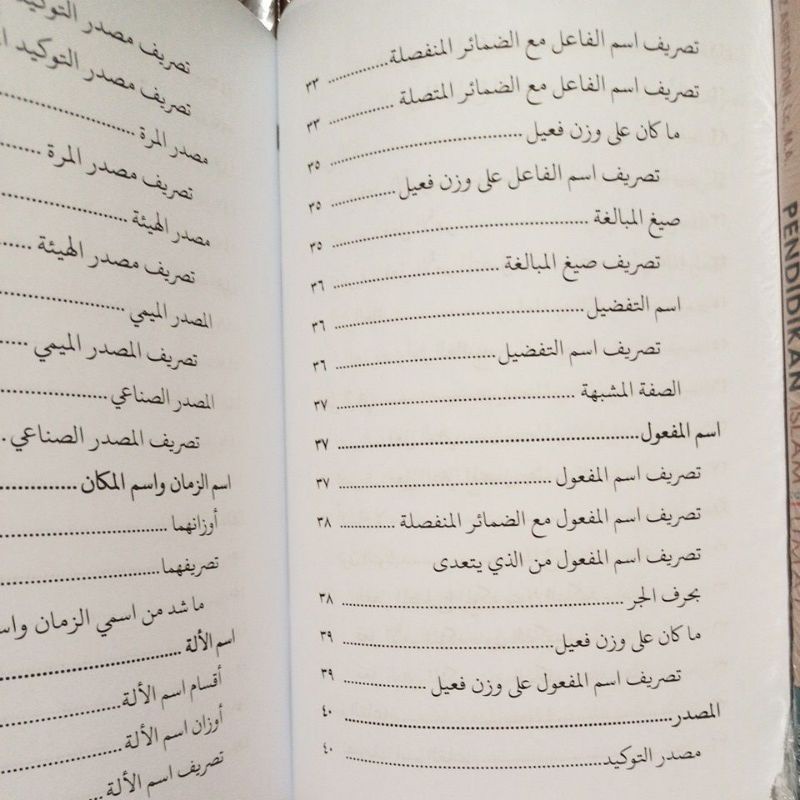 تصريف اسم الفاعل مع الضمائر المنفصلة ٣٣
تصريف اسم الفاعل مع الضمائر المتصلة ٣٣
ما كان على وزن فعيل ٣٥
تصريف اسم الفاعل على وزن فعيل ٣٥
صيغ المبالغة ٣٥
تصريف صيغ المبالغة ٣٦
اسم التفضيل ٣٦
تصريف اسم التفضيل ٣٦
الصفة المشبهة ٣٧
اسم المفعول ٣٧
تصريف اسم المفعول ٣٧
تصريف اسم المفعول مع الضمائر المنفصلة ٣٨
تصريف اسم المفعول من الذي يتعدى
بحرف الجر ٣٨
ما كان على وزن فعيل ٣٩
تصريف اسم المفعول على وزن فعيل ٣٩
المصدر ٤٠
مصدر التوكيد ٤٠
تصريف مصدر التوكيد
تصريف مصدر التوكيد
مصدر المرة
تصريف مصدر المرة
مصدر الهيئة
تصريف مصدر الهيئة
المصدر الميمي
تصريف المصدر الميمي
المصدر الصناعي
تصريف المصدر الصناعي
اسم الزمان واسم المكان
أوزانهما
تصريفهما
ما شد من اسمي الزمان
اسم الألة
أقسام اسم الألة
أوزان اسم الألة
تصريف اسم الألة
PENDIDIKAN ISLAM